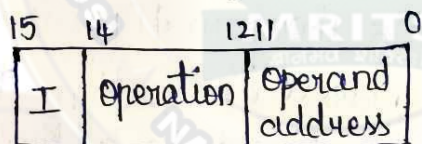 15 14 1211 0
I operation operand
address